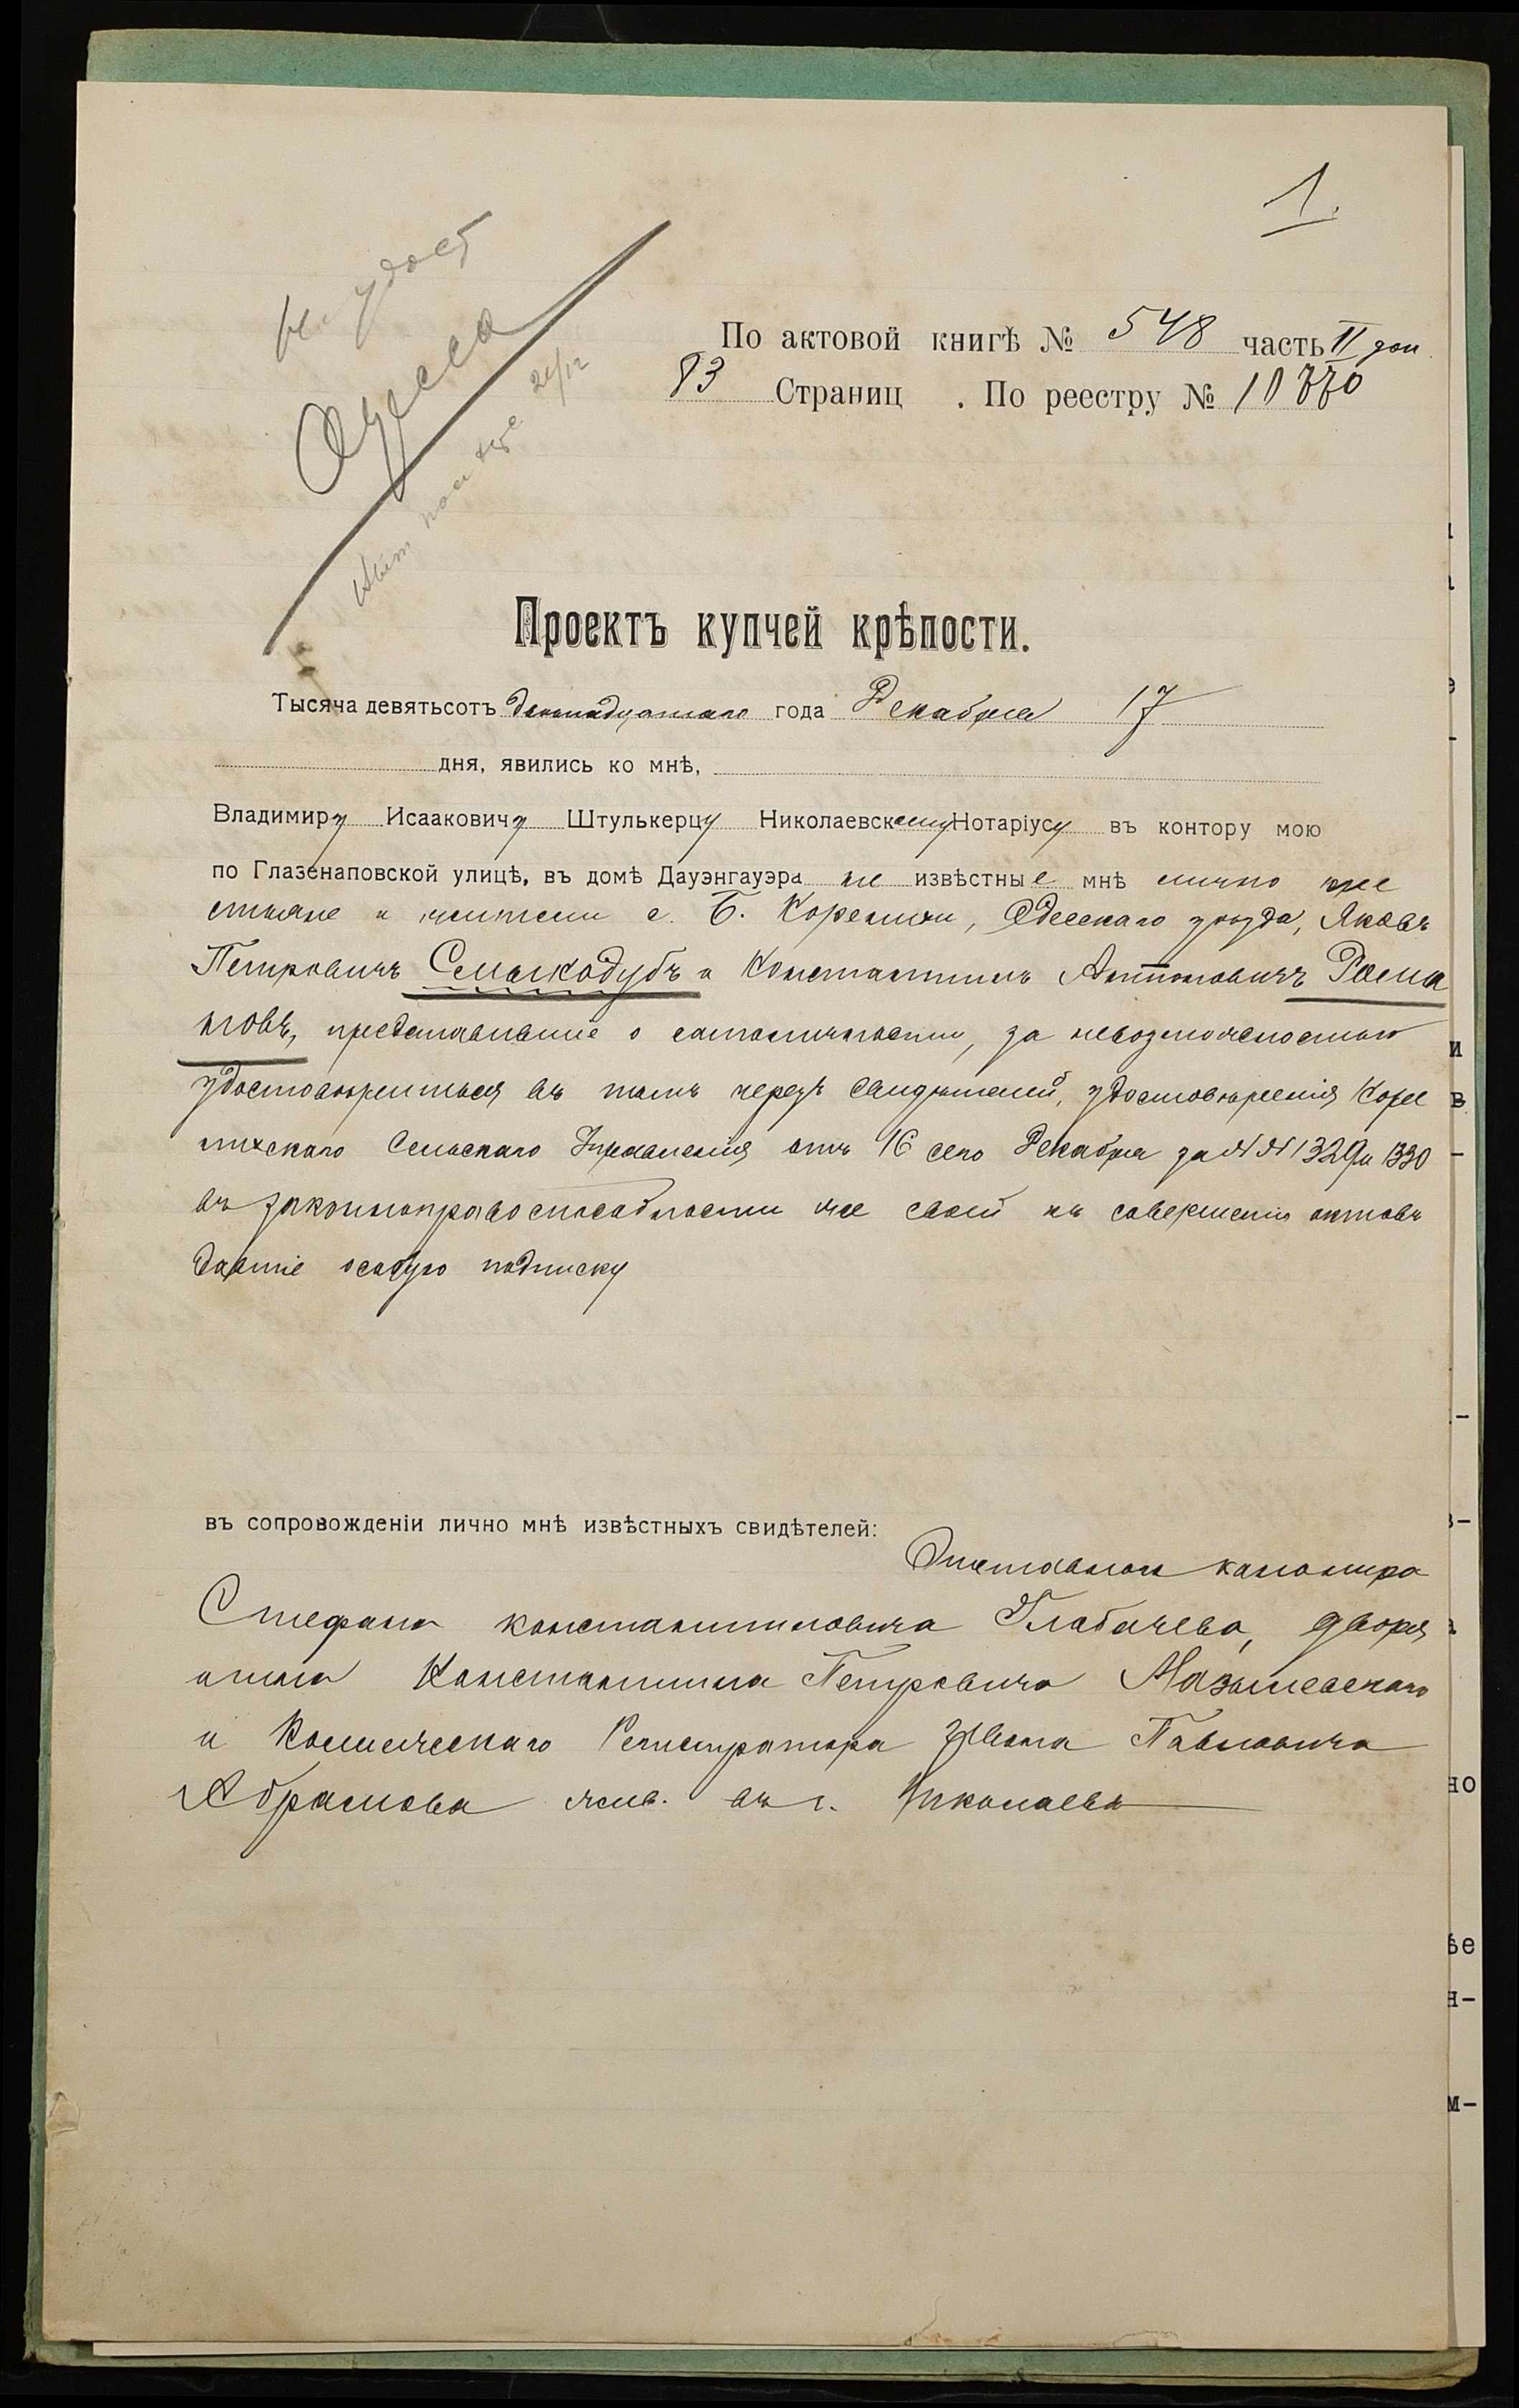 1.
Одесса
По актовой книгѣ № 548 часть II доп.
83 Страниц . По реестру № 10770
Проектъ купчей крѣпости.
Тысяча девятьсотъ двѣнадцатаго года Декабря 17
дня, явились ко мнѣ,
Владимиру Исааковичу Штулькерцу Николаевскому Нотаріусу въ контору мою
по Глазенаповской улицѣ, въ домѣ Дауэнгауэра не извѣстные мнѣ лично кре
стьяне и жители с. Б. Коренихи, Одесскаго уѣзда, Яковъ
Петровичъ Семыкодубъ и Константинъ Антоновичъ Рома
новъ, представившіе о самоличности, за невозможностью
удостовѣриться въ томъ черезъ свидѣтелей, удостовѣренія Коре
нихскаго Сельскаго Управленія отъ 16 сего Декабря за №№ 1329 и 1330
въ законноправоспособности же своей къ совершенію актовъ
давшіе особую подписку
въ сопровожденіи лично мнѣ извѣстныхъ свидѣтелей:
Отставнаго канонира
Стефана Константиновича Глабачева, дворя
нина Константина Петровича
и Коллежскаго Регистратора Ивана Павловича
Абрамова жив. въ г. Николаевѣ